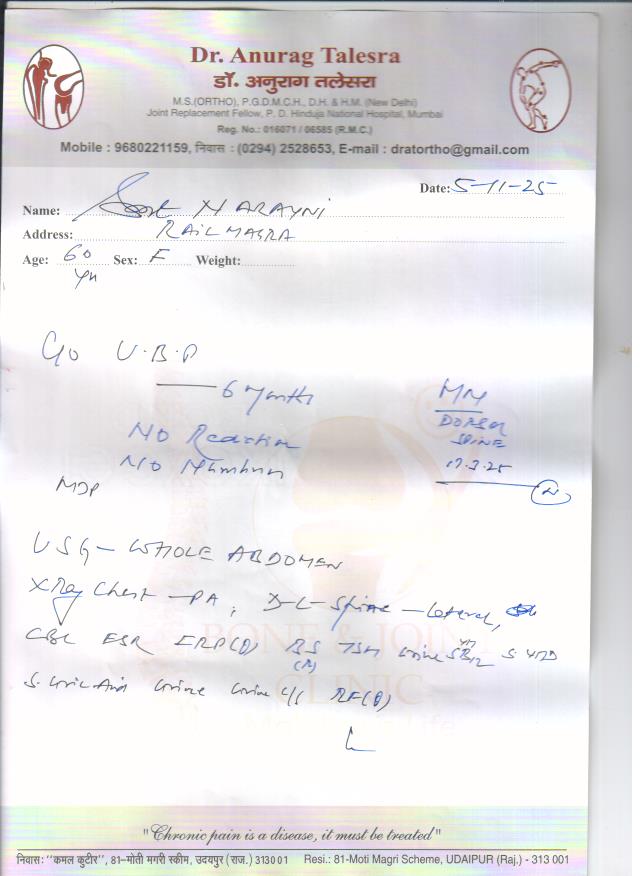 Dr. Anurag Talesra
डॉ. अनुराग तलेसरा
M.S.(ORTHO), P.G.D.M.C.H., D.H. & H.M. (New Delhi)
Joint Replacement Fellow, P. D. Hinduja National Hospital, Mumbai
Reg. No.: 016071 / 06585 (R.M.C.)
Mobile : 9680221159, निवास : (0294) 2528653, E-mail : dratortho@gmail.com
Date: 5-11-25
Name: NARAYNI
Address: RAILMAGRA
Age: 60 Sex: F Weight:
yrs
C/o U.B.P
6 months
MM
DORSAL
SPINE
17.3.25
N
NO Reaction
NO Numbness
MDP
USG - WHOLE ABDOMEN
X Ray Chest - PA, D-L-Spine - Lateral,
CBC ESR CRP(Q) BS TSH Urine
(R)
S. Uric Acid Urine Urine C/S RF(Q)
BONE & JOINT
CLINIC
"Chronic pain is a disease, it must be treated"
निवास: "कमल कुटीर", 81-मोती मगरी स्कीम, उदयपुर (राज.) 313001 Resi.: 81-Moti Magri Scheme, UDAIPUR (Raj.) - 313 001